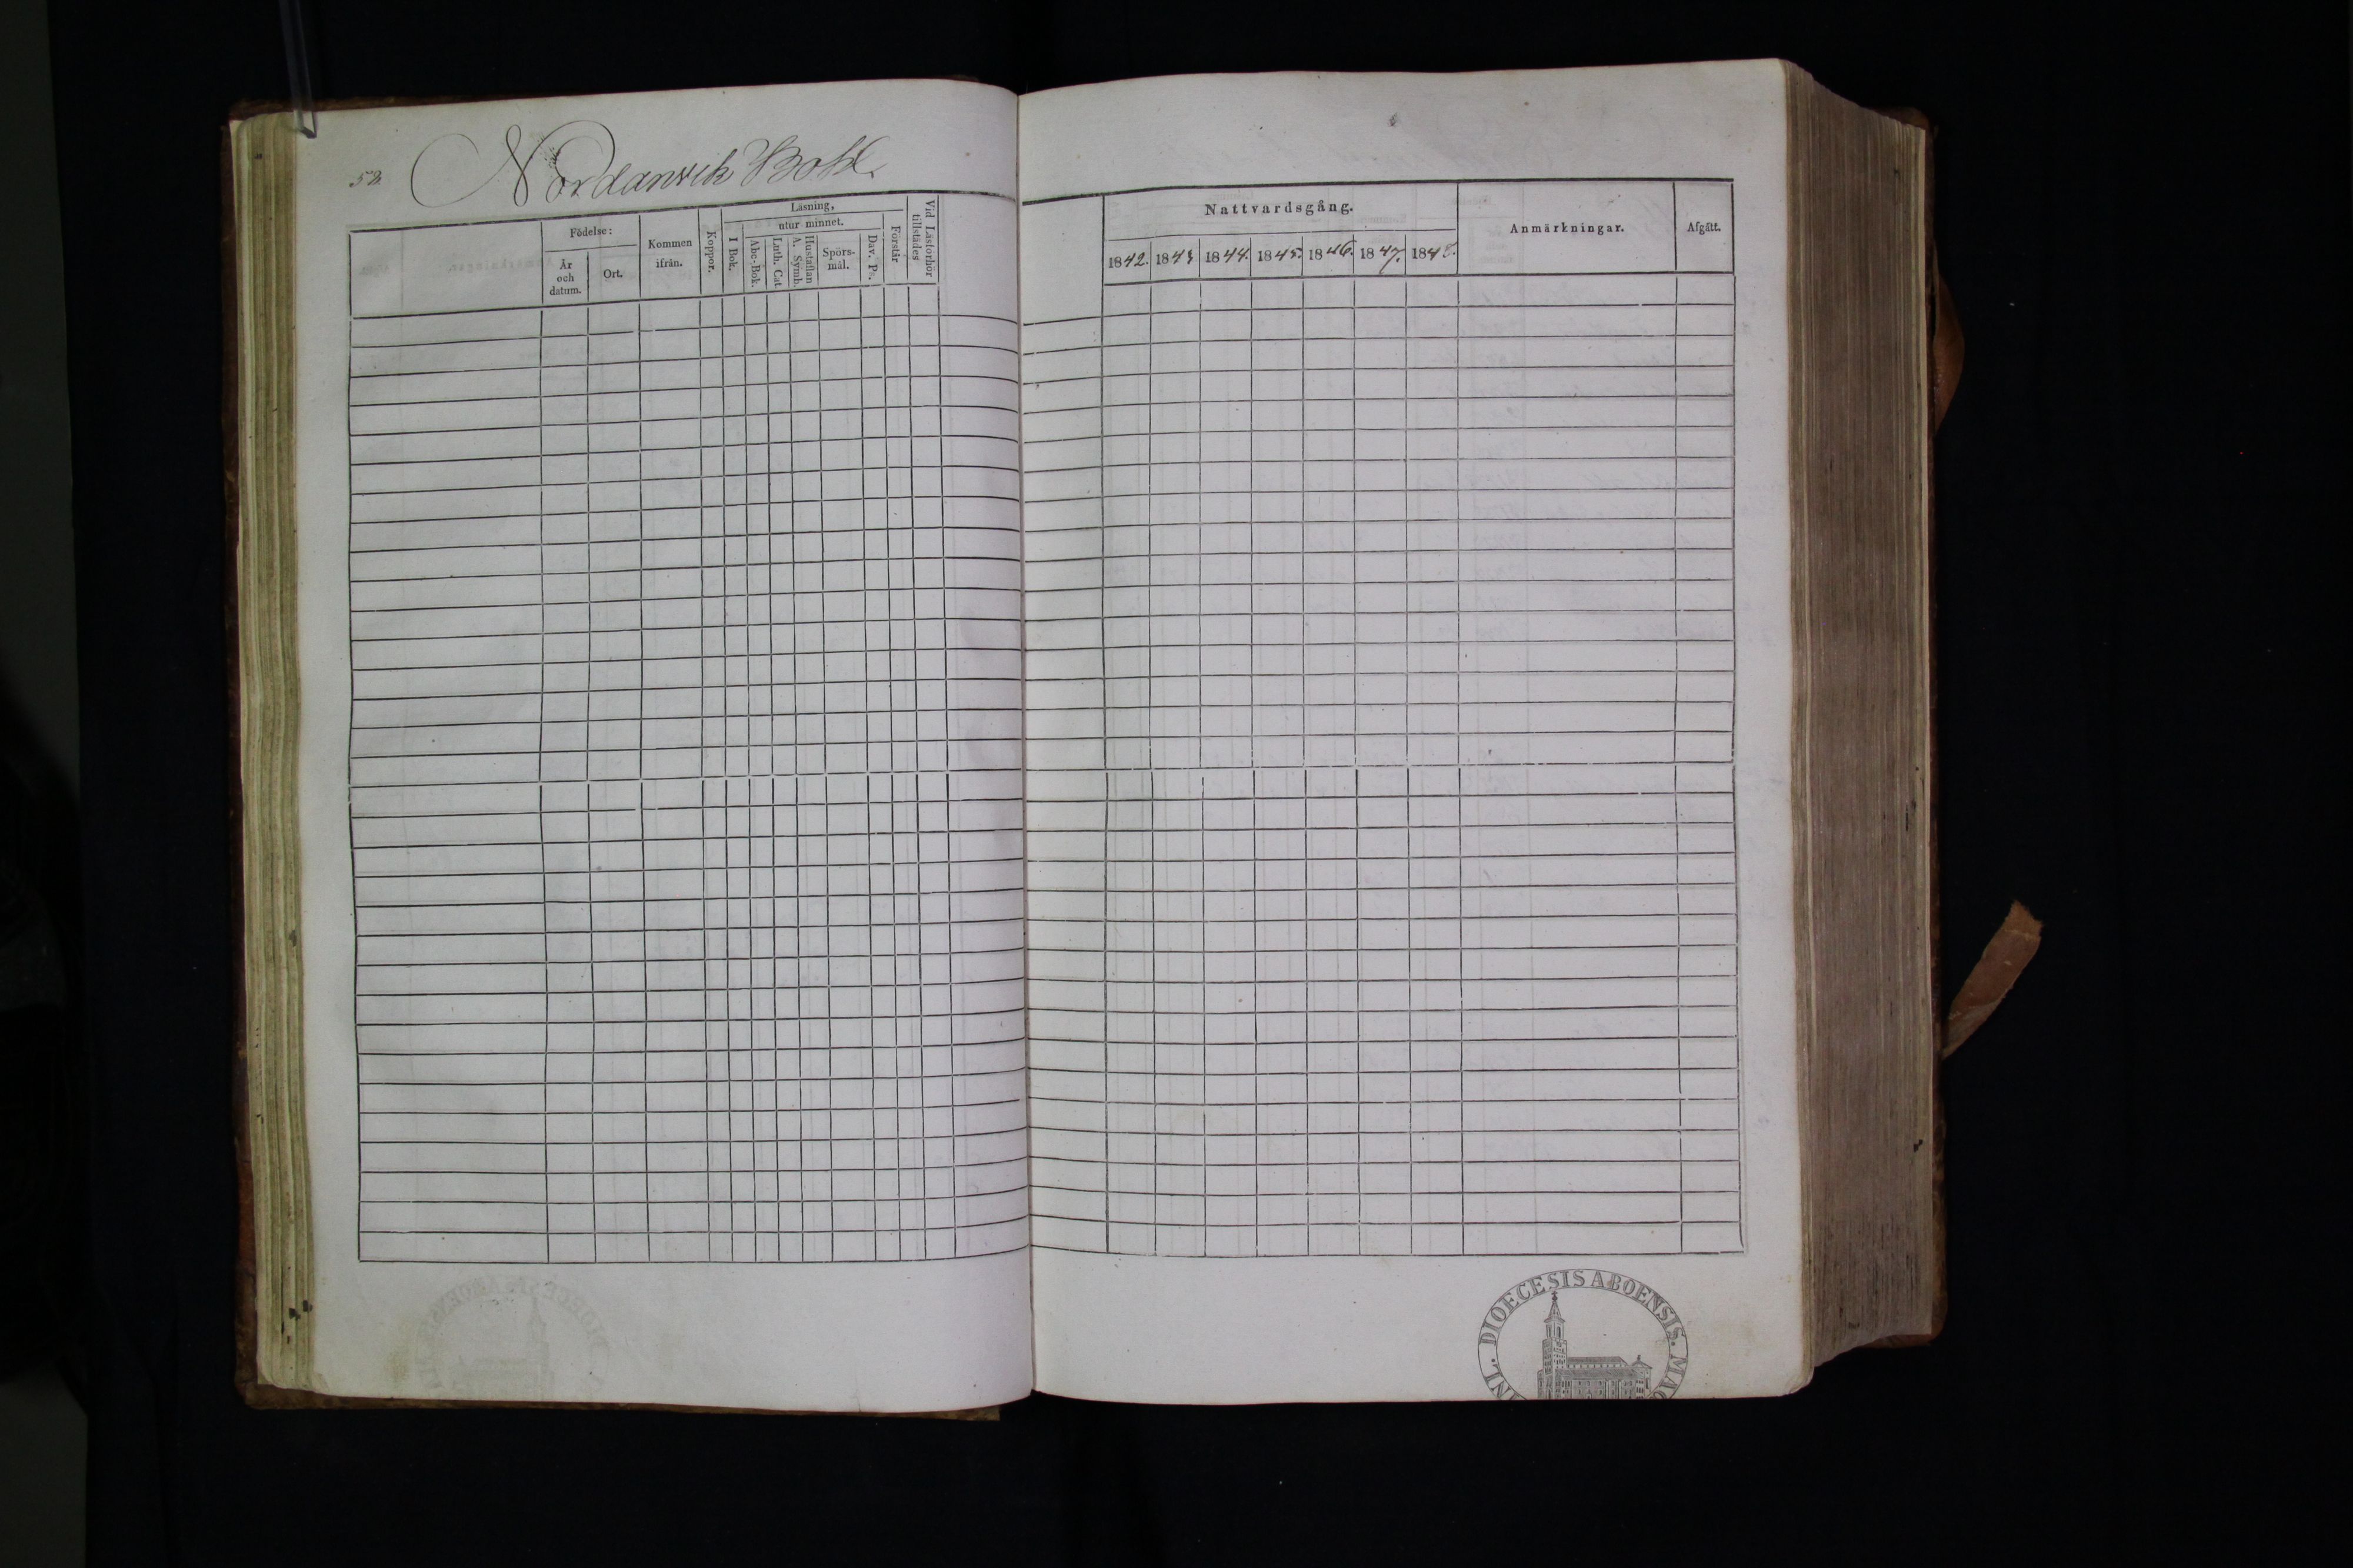 52
Nordanvik Bohl.
Födelse:
År och datum.
Ort.
Kommen ifrån.
Koppor.
Läsning,
utur minnet.
I Bok.
Abc-Bok.
Luth. Cat.
A. Symb.
Hustaflan
Spörs-mål.
Dav. Ps.
Förstår
Vid Läsförhör tillstädes
Nattvardsgång.
1842. 1843 1844. 1845. 1846. 1847. 1848.
Anmärkningar.
Afgått.
DIOECESIS ABOENSIS. MAG